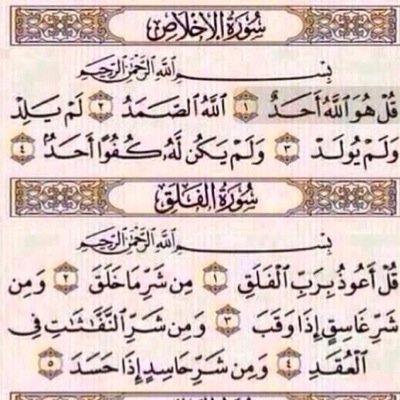 سُورَةُ الإِخْلَاصِ
بِسْمِ اللَّهِ الرَّحْمَٰنِ الرَّحِيمِ
قُلْ هُوَ اللَّهُ أَحَدٌ ١ اللَّهُ الصَّمَدُ ٢ لَمْ يَلِدْ
وَلَمْ يُولَدْ ٣ وَلَمْ يَكُن لَّهُ كُفُوًا أَحَدٌ ٤
سُورَةُ الْفَلَقِ
بِسْمِ اللَّهِ الرَّحْمَٰنِ الرَّحِيمِ
قُلْ أَعُوذُ بِرَبِّ الْفَلَقِ ١ مِن شَرِّ مَا خَلَقَ ٢ وَمِن
شَرِّ غَاسِقٍ إِذَا وَقَبَ ٣ وَمِن شَرِّ النَّفَّاثَاتِ فِي
الْعُقَدِ ٤ وَمِن شَرِّ حَاسِدٍ إِذَا حَسَدَ ٥